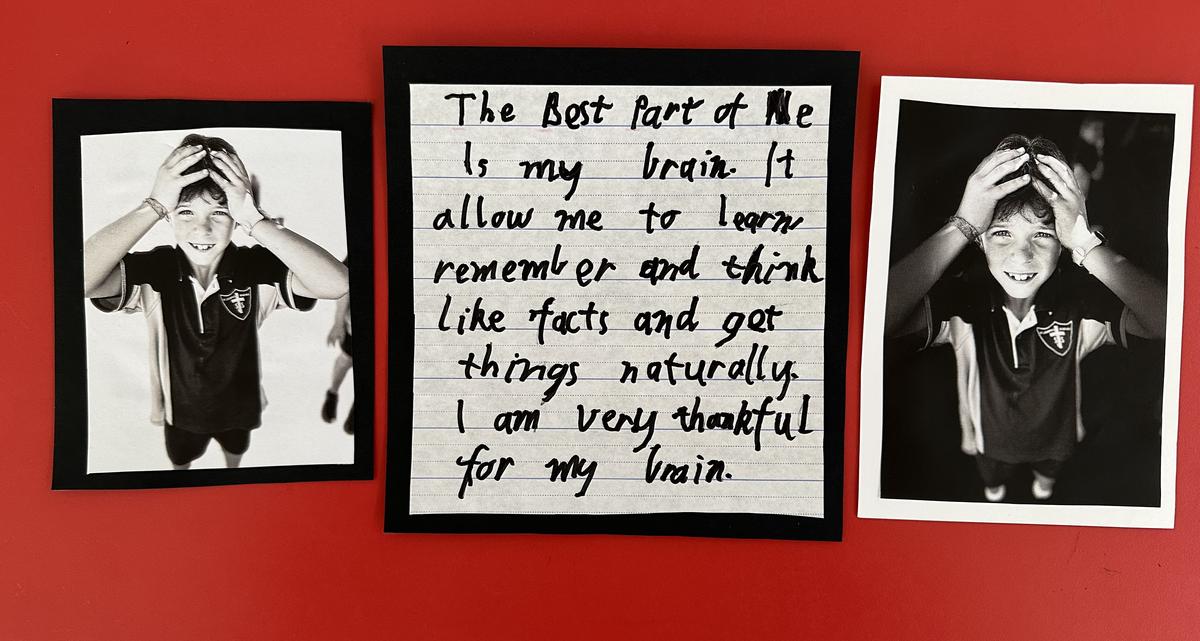 The Best Part of Me
Is my brain. It
allow me to learn
remember and think
like facts and get
things naturally.
I am very thankful
for my brain.